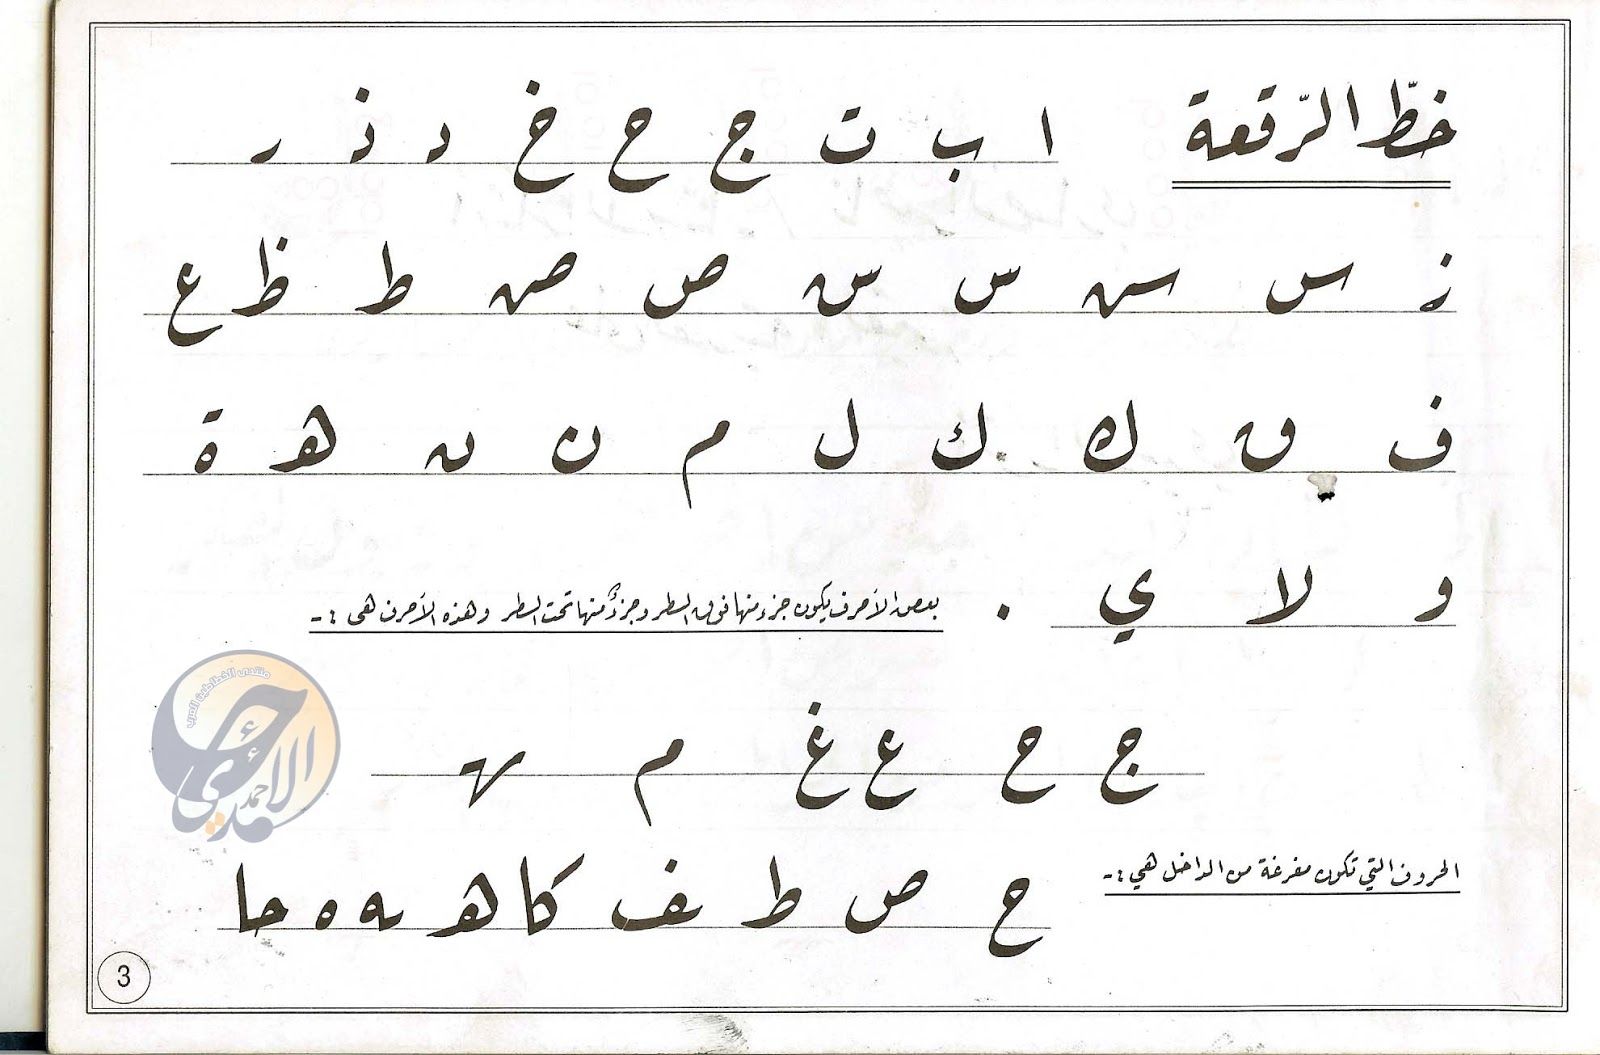 خطّ الرّقعة
ا ب ت ج ح خ د ذ ر
ز س س س س ص ص ط ظ ع
ف ق ك ك ل م ن ن هـ ة
و لا ي .
بعض الأحرف يكون جزء منها فوق السطر وجزءٌ منها تحت السطر وهذه الأحرف هي :-
ج ح ع غ م ـهـ
الحروف التي تكون مفرغة من الداخل هي :-
ح ص ط ـف كا هـ ـه ه حا
منتدى الخطاطين العرب
3